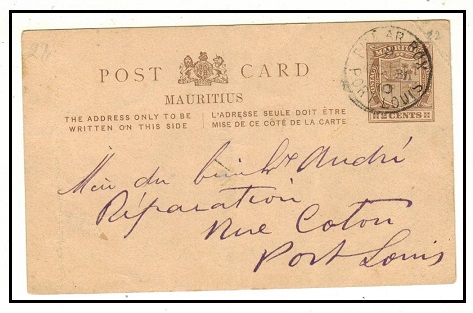 POST CARD
MAURITIUS
THE ADDRESS ONLY TO BE WRITTEN ON THIS SIDE
L'ADRESSE SEULE DOIT ÊTRE MISE DE CE CÔTÉ DE LA CARTE
PILLAR BOX
PORT LOUIS
MAURITIUS
2 CENTS
du André
Réparation
Rue Coton
Port Louis